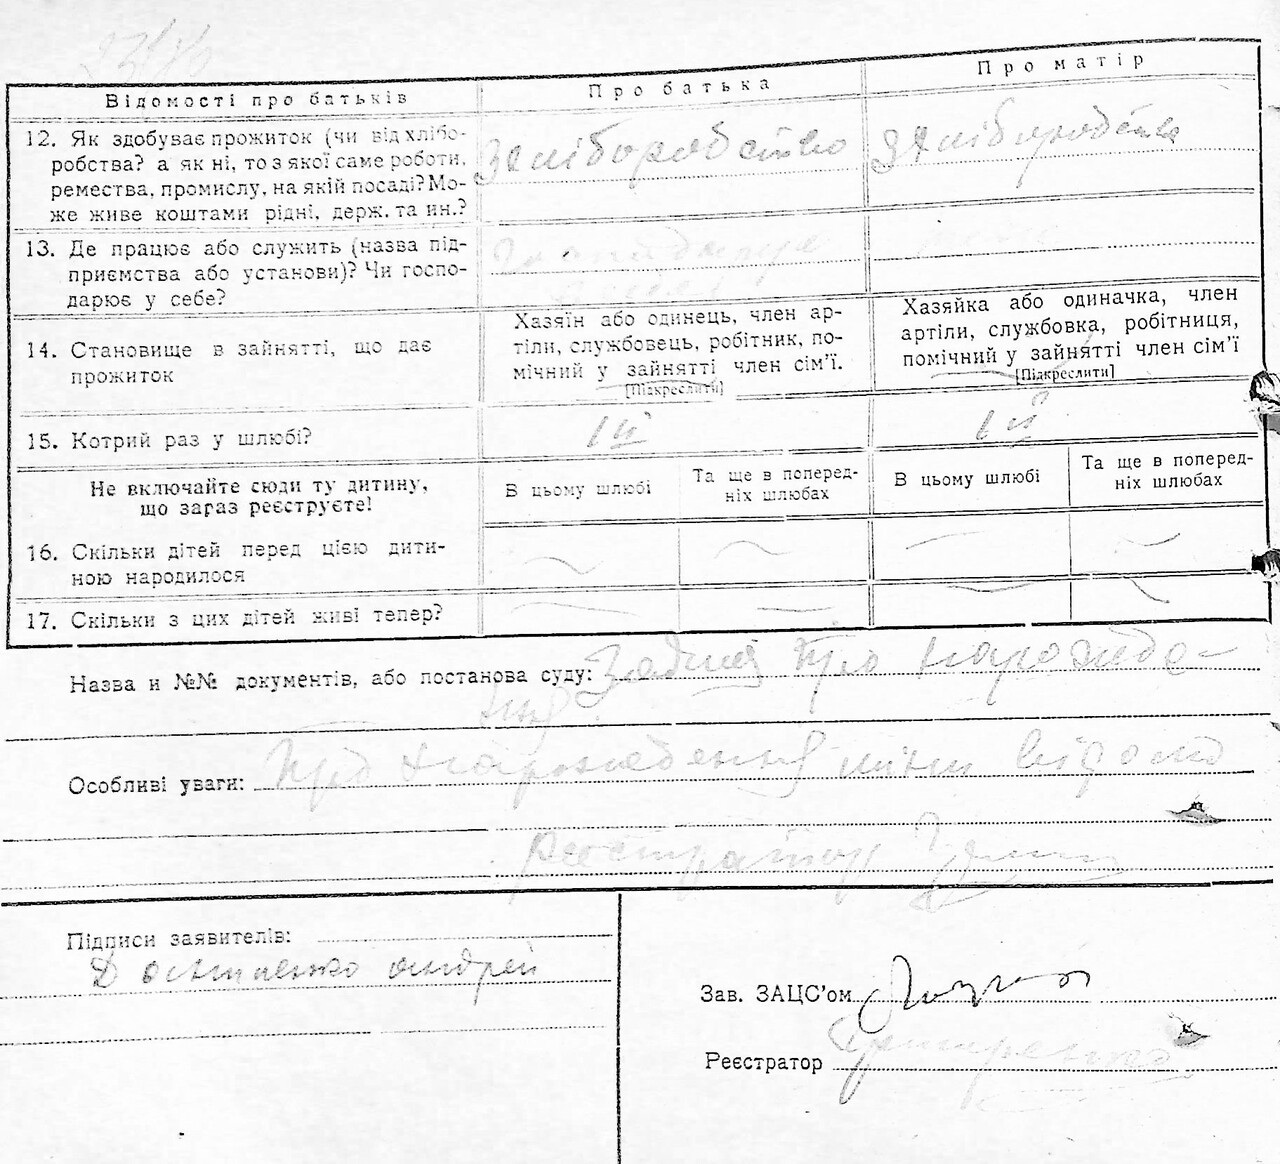 Відомості про батьків
Про батька
Про матір
12. Як здобуває прожиток (чи від хлібо-
робства? а як ні, то з якої саме роботи,
ремества, промислу, на якій посаді? Мо-
же живе коштами рідні, держ. та ин.?
хліборобство
хліборобство
13. Де працює або служить (назва під-
приємства або установи)? Чи госпо-
дарює у себе?
14. Становище в зайнятті, що дає
прожиток
Хазяїн або одинець, член ар-
тіли, службовець, робітник, по-
мічний у зайнятті член сім'ї.
[Підкреслити]
Хазяйка або одиначка, член
артіли, службовка, робітниця,
помічний у зайнятті член сім'ї
[Підкреслити]
15. Котрий раз у шлюбі?
Iй
Iй
Не включайте сюди ту дитину,
що зараз реєструєте!
В цьому шлюбі
Та ще в поперед-
ніх шлюбах
В цьому шлюбі
Та ще в поперед-
ніх шлюбах
16. Скільки дітей перед цією дити-
ною народилося
17. Скільки з цих дітей живі тепер?
Назва и №№ документів, або постанова суду: про народже-
Особливі уваги: Про народження
реєстратор
Підписи заявителів:
андрей
Зав. ЗАЦС'ом
Реєстратор